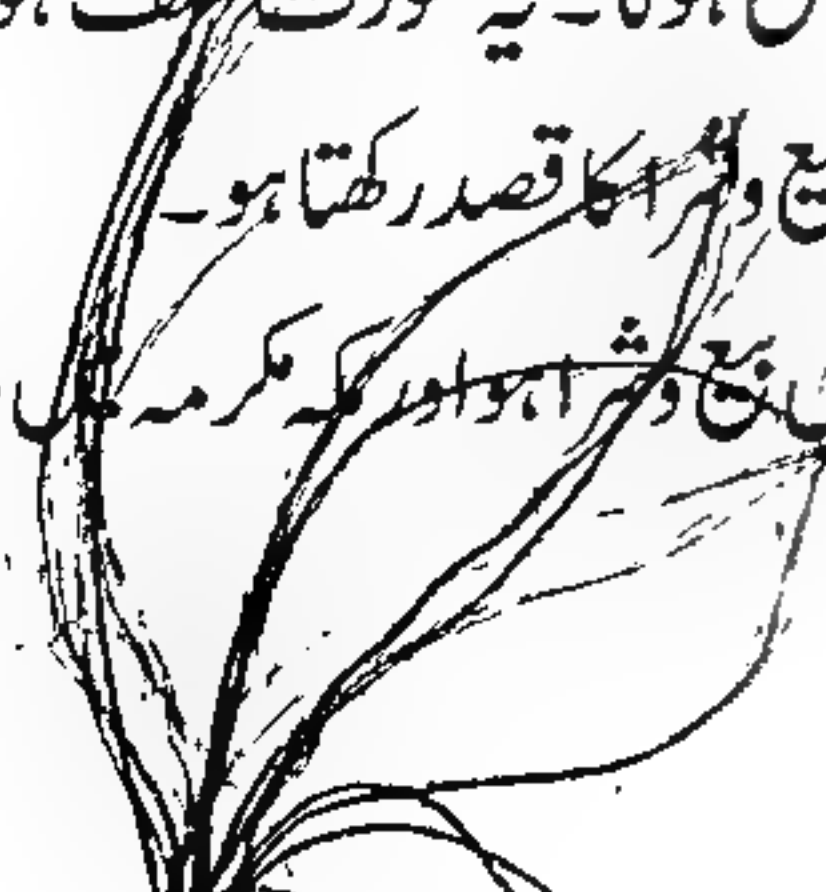 ہوگا۔ یہ صورت
بیع و شرا کا قصد رکھتا ہو۔
بیع و شرا ہو اور مکہ مکرمہ میں